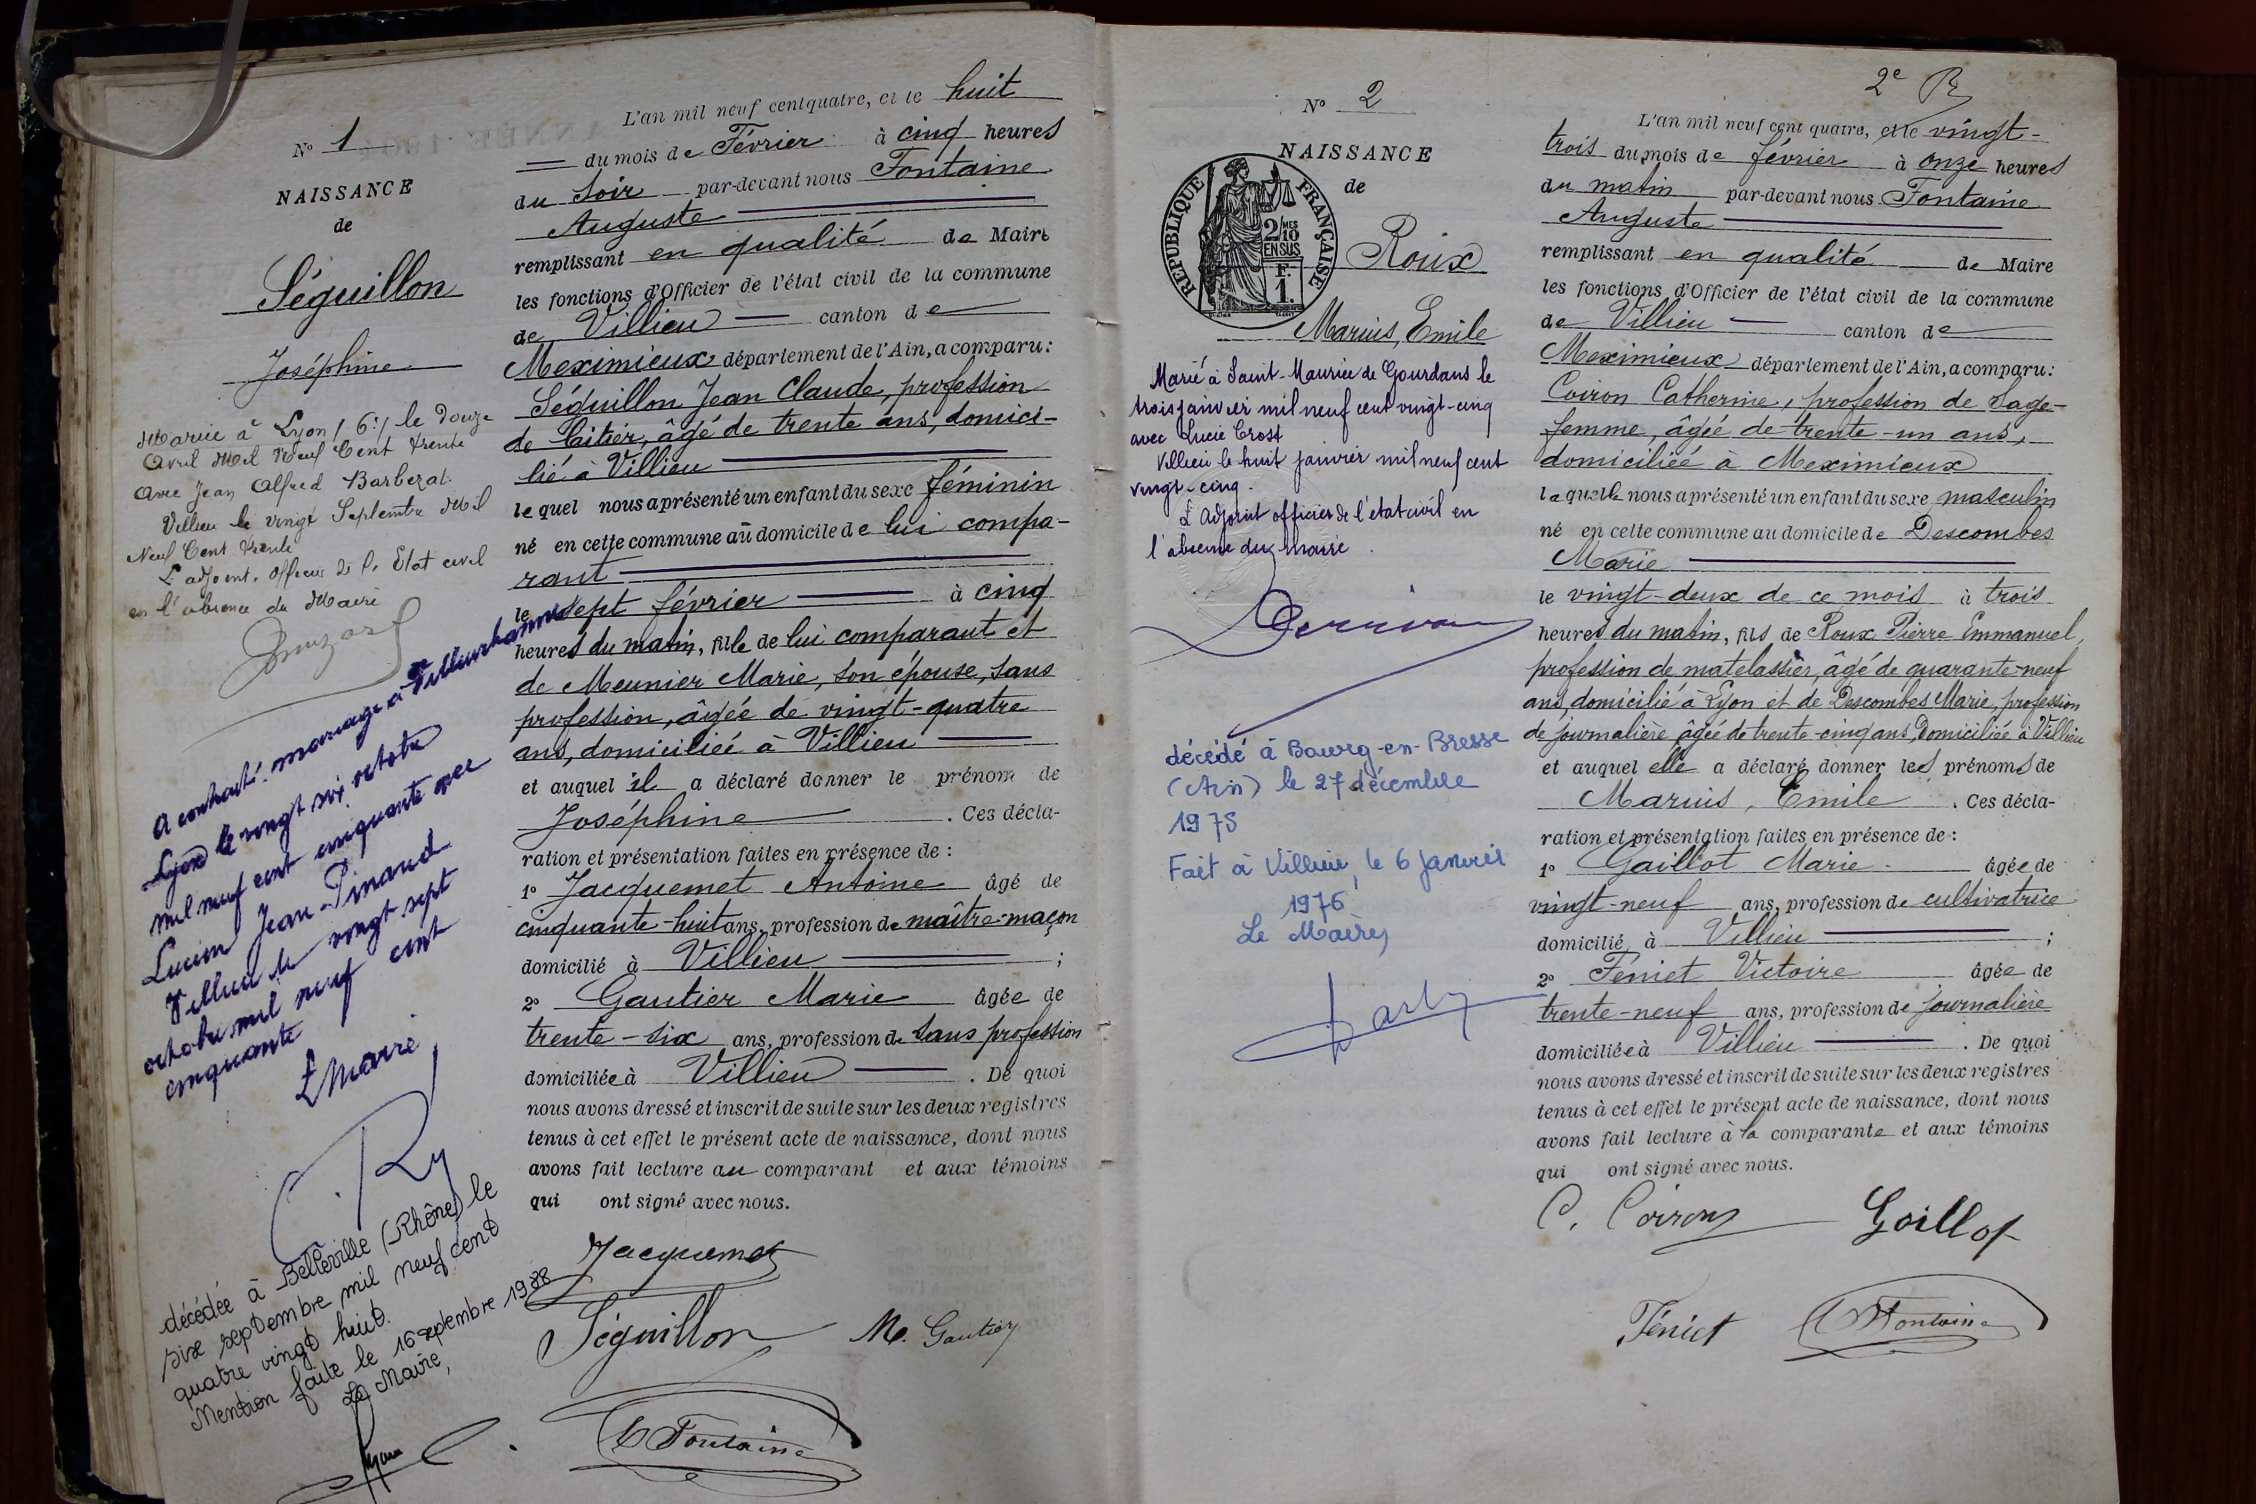 N° 1
NAISSANCE
de
Séguillon
Joséphine
Mariée à Lyon (6e) le Douze
Avril Mil Neuf Cent trente
Avec Jean Alfred Barberat
Villieu le vingt Septembre Mil
Neuf Cent Trente
L'adjoint, Officier de l'Etat civil
en l'absence du Maire
A contracté mariage à Villeurbanne
Lyon le vingt six octobre
mil neuf cent cinquante avec
Lucien Jean Pinaud
Villieu le vingt sept
octobre mil neuf cent
cinquante
Le Maire
décédée à Belleville (Rhône) le
six septembre mil neuf cent
quatre vingt huit.
Mention faite le 16 septembre 1988
Le Maire,
L'an mil neuf cent quatre, et le huit
du mois de Février à cinq heures
du soir par-devant nous Fontaine
Auguste
remplissant en qualité de Maire
les fonctions d'Officier de l'état civil de la commune
de Villieu canton de
Meximieux département de l'Ain, a comparu:
Séguillon Jean Claude, profession
de , âgé de trente ans, domici-
lié à Villieu
lequel nous a présenté un enfant du sexe féminin
né en cette commune au domicile de lui compa-
rant
le sept février à cinq
heures du matin, fille de lui comparant et
de Meunier Marie, son épouse, sans
profession, âgée de vingt-quatre
ans, domiciliée à Villieu
et auquel il a déclaré donner le prénom de
Joséphine. Ces décla-
ration et présentation faites en présence de :
1° Jacquemet Antoine âgé de
cinquante-huit ans, profession de maître-maçon
domicilié à Villieu ;
2° Gautier Marie âgée de
trente-six ans, profession de sans profession
domiciliée à Villieu. De quoi
nous avons dressé et inscrit de suite sur les deux registres
tenus à cet effet le présent acte de naissance, dont nous
avons fait lecture au comparant et aux témoins
qui ont signé avec nous.
Jacquemet
Séguillon M. Gautier
Fontaine
2e
N° 2
NAISSANCE
de
REPUBLIQUE FRANÇAISE
2/10
MES
EN SUS
F.
1.
Roux
Marius, Emile
Marié à Saint-Maurice de Gourdans le
trois janvier mil neuf cent vingt-cinq
avec Lucie Crost
Villieu le huit janvier mil neuf cent
vingt-cinq.
L'Adjoint officier de l'état civil en
l'absence du maire.
décédé à Bourg-en-Bresse
(Ain) le 27 décembre
1975
Fait à Villieu, le 6 janvier
1976
Le Maire,
L'an mil neuf cent quatre, et le vingt-
trois du mois de février à onze heures
du matin par-devant nous Fontaine
Auguste
remplissant en qualité de Maire
les fonctions d'Officier de l'état civil de la commune
de Villieu canton de
Meximieux département de l'Ain, a comparu:
Coiron Catherine, profession de Sage-
femme, âgée de trente-un ans,
domiciliée à Meximieux
laquelle nous a présenté un enfant du sexe masculin
né en cette commune au domicile de Descombes
Marie
le vingt-deux de ce mois à trois
heures du matin, fils de Roux Pierre Emmanuel,
profession de matelassier, âgé de quarante-neuf
ans, domicilié à Lyon et de Descombes Marie, profession
de journalière âgée de trente-cinq ans, Domiciliée à Villieu
et auquel elle a déclaré donner les prénoms de
Marius, Emile. Ces décla-
ration et présentation faites en présence de :
1° Gaillot Marie âgée de
vingt-neuf ans, profession de cultivatrice
domicilié à Villieu ;
2° Féniet Victoire âgée de
trente-neuf ans, profession de journalière
domiciliée à Villieu. De quoi
nous avons dressé et inscrit de suite sur les deux registres
tenus à cet effet le présent acte de naissance, dont nous
avons fait lecture à la comparante et aux témoins
qui ont signé avec nous.
C. Coiron Gaillot
Féniet Fontaine